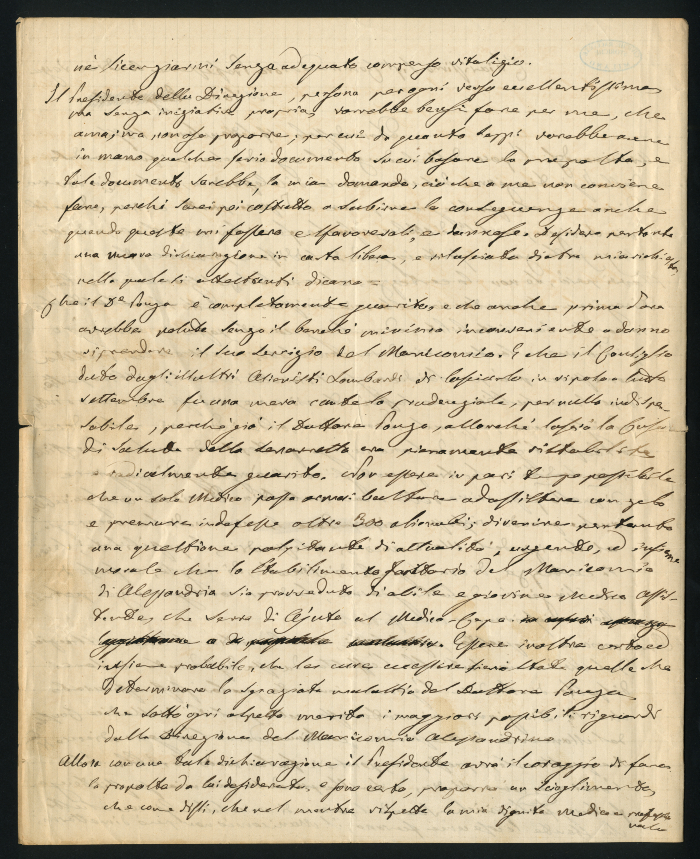 nè licenziarmi senza adeguato compenso vitalizio.
Il Presidente della Direzione, persona per ogni verso eccellentissima
ma senza iniziativa propria, vorrebbe bensì fare per me, che
ama, ma non osa proporre; per cui da quanto seppi vorrebbe avere
in mano qualche serio documento su cui basare la proposta, e
tale documento sarebbe, la mia domanda, ciò che a me non conviene
fare, perchè sarei poi costretto a subirne le conseguenze anche
quando queste mi fossero e sfavorevoli, e dannose. Desidero pertanto
una nuova dichiarazione in carta libera, e rilasciata dietro mia richiesta,
nella quale si attestasse e dicesse =
Che il Dr Ponza è completamente guarito, e che anche prima d'ora
avrebbe potuto senza il benchè minimo inconveniente o danno
riprendere il suo servizio del Manicomio. E che il Consiglio
dato dagli illustri Alienisti Lombardi di lasciarlo in riposo a tutto
settembre fu una mera cautela prudenziale, per nulla indispen-
sabile, perchè già il Dottore Ponza, allorchè lasciò la Casa
di Salute della Senavretta era pienamente ristabilito
e radicalmente guarito. Non essere in pari tempo possibile
che un solo Medico possa ormai bastare ad assistere con zelo
e premure indefesse oltre 300 alienati; divenire pertanto
una questione palpitante di attualità, urgente, ed insieme
morale che lo Stabilimento Sanitario del Manicomio
di Alessandria sia provveduto di abile e giovine Medico assis-
tente, che serva di Ajuto al Medico-Capo.
Essere inoltre certo ed
insieme probabile, che le cure eccessive siano state quelle che
determinarono la sgraziata malattia del Dottore Ponza
che sotto ogni aspetto merita i maggiori possibili riguardi
dalla Direzione del Manicomio Alessandrino
Allora con una tale dichiarazione il Presidente avrà il coraggio di fare
la proposta da lui desiderata, e sono certo, proporre un scioglimento,
che come dissi, che nel mentre rispetta la mia dignità Medica e professio-
nale